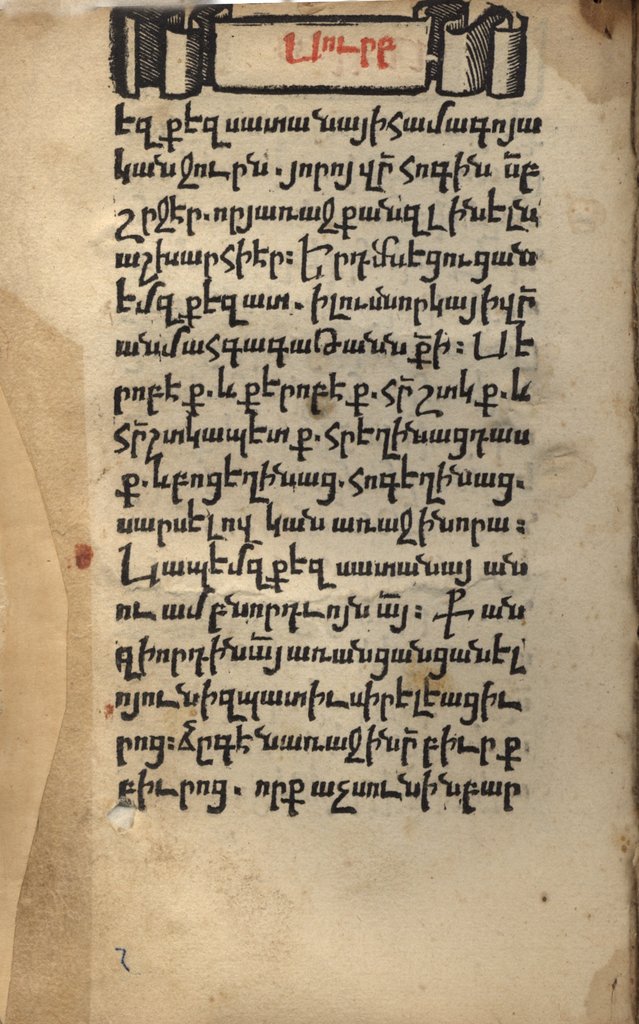 Սուրբ
եզ քեզ սատանայ ի համագոյա
կան ջուրն . յորոյ վր հոգին ած
շրջէր . որ յառաջ քան զլինելն
աշխարհի էր : Երդմնեցուցան
եմ զքեզ ատ . ի լուսնորկայ ի վր
անմահ գագաթանն քի : Սէ
րոբէք . և քերոբէք . հրշտկք . և
հրշտկապետք . հրեղինաց դաս
ք . և բոցեղինաց . հոգեղինաց .
սարսելով կան առաջի նորա :
Կապեմ զքեզ սատանայ ան
ուամբ նորդւոյն այ : Քան
զի որդին այ առանց անցանել
ոյ ունի զպատիւ սիրելեացիւ
րոց : Ճըգեն առաջի նր բիւրք
բիւրոց . որք աչս ունին բար